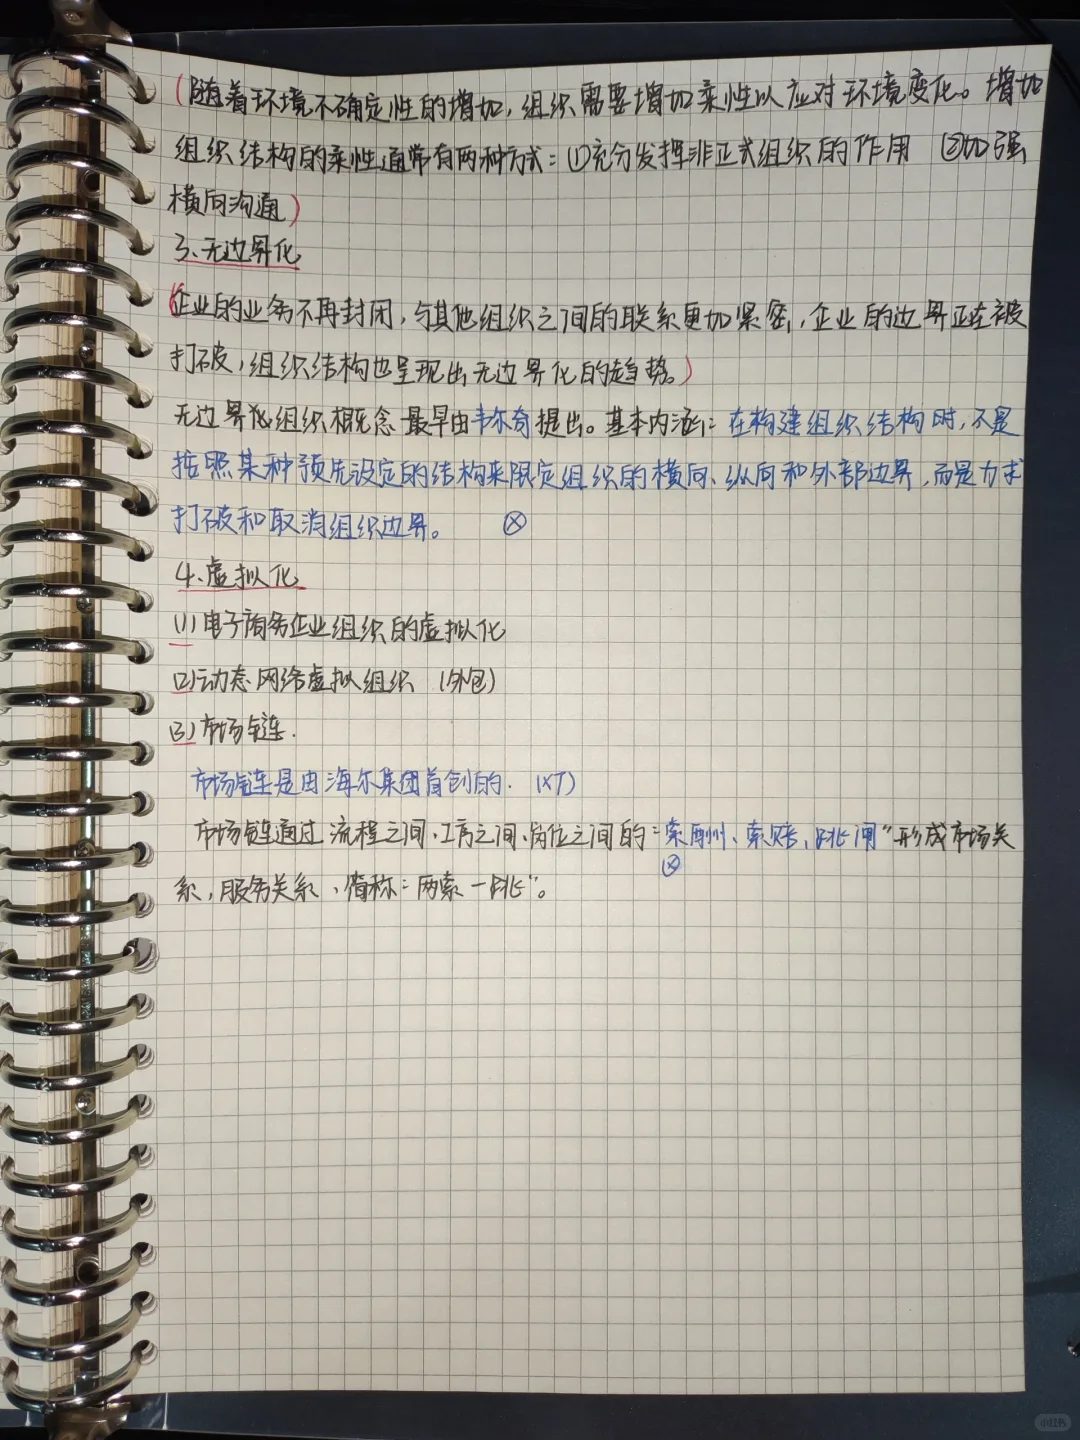 (随着环境不确定性的增加，组织需要增加柔性以应对环境变化。增加
组织结构的柔性通常有两种方式：(1)充分发挥非正式组织的作用 ②加强
横向沟通)
3、无边界化
(企业的业务不再封闭，与其他组织之间的联系更加紧密，企业的边界正在被
打破，组织结构也呈现出无边界化的趋势。)
无边界化组织概念最早由韦尔奇提出。基本内涵：在构建组织结构时，不是
按照某种预先设定的结构来限定组织的横向、纵向和外部边界，而是力求
打破和取消组织边界。 ⓧ
4、虚拟化
(1)电子商务企业组织的虚拟化
(2)动态网络虚拟组织 (外包)
(3)市场链.
市场链是由海尔集团首创的. (XT)
市场链通过流程之间、工序之间、岗位之间的"索酬、索赔、跳闸"形成市场关
系，服务关系、简称"两索一跳"。
ⓧ
小红书